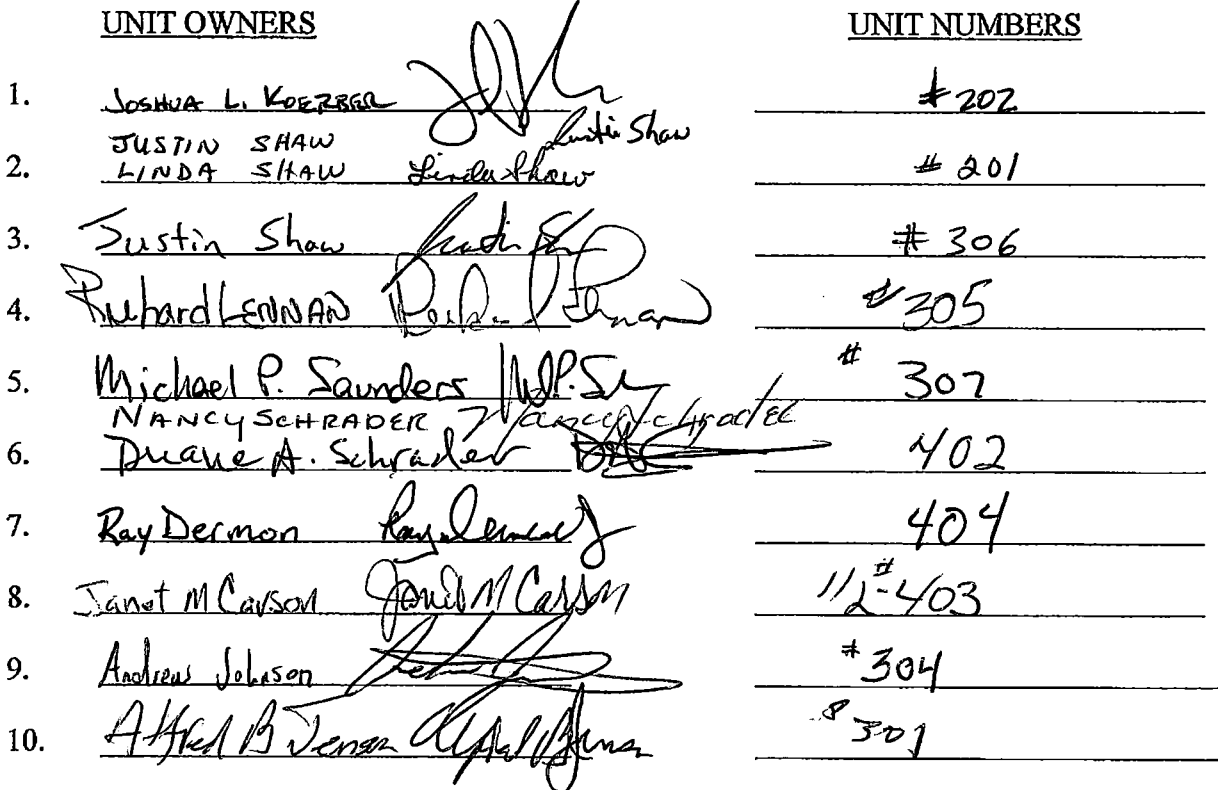 UNIT OWNERS UNIT NUMBERS
1. JOSHUA L. KOERBER #202
JUSTIN SHAW Justin Shaw
2. LINDA SHAW Linda Shaw #201
3. Justin Shaw #306
4. Richard LENNAN #305
5. Michael P. Saunders M.P.S #307
NANCY SCHRADER Nancy Schrader
6. Duane A. Schrader 402
7. Ray Dermon 404
8. Janet M Carson Janet M Carson 1/2-#403
9. Andrew Johnson #304
10. Alfred B Jensen Alfred B Jensen 301